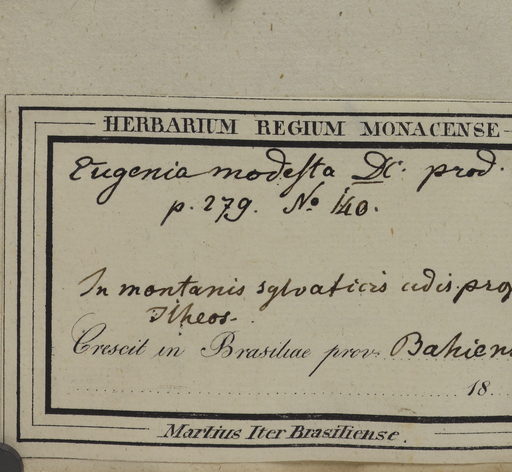 HERBARIUM REGIUM MONACENSE
Eugenia modesta DC. prod.
p. 279. No 140.
In montanis sylvaticis
Ilheos.
Crescit in Brasiliae prov. Bahien
18
Martius Iter Brasiliense.